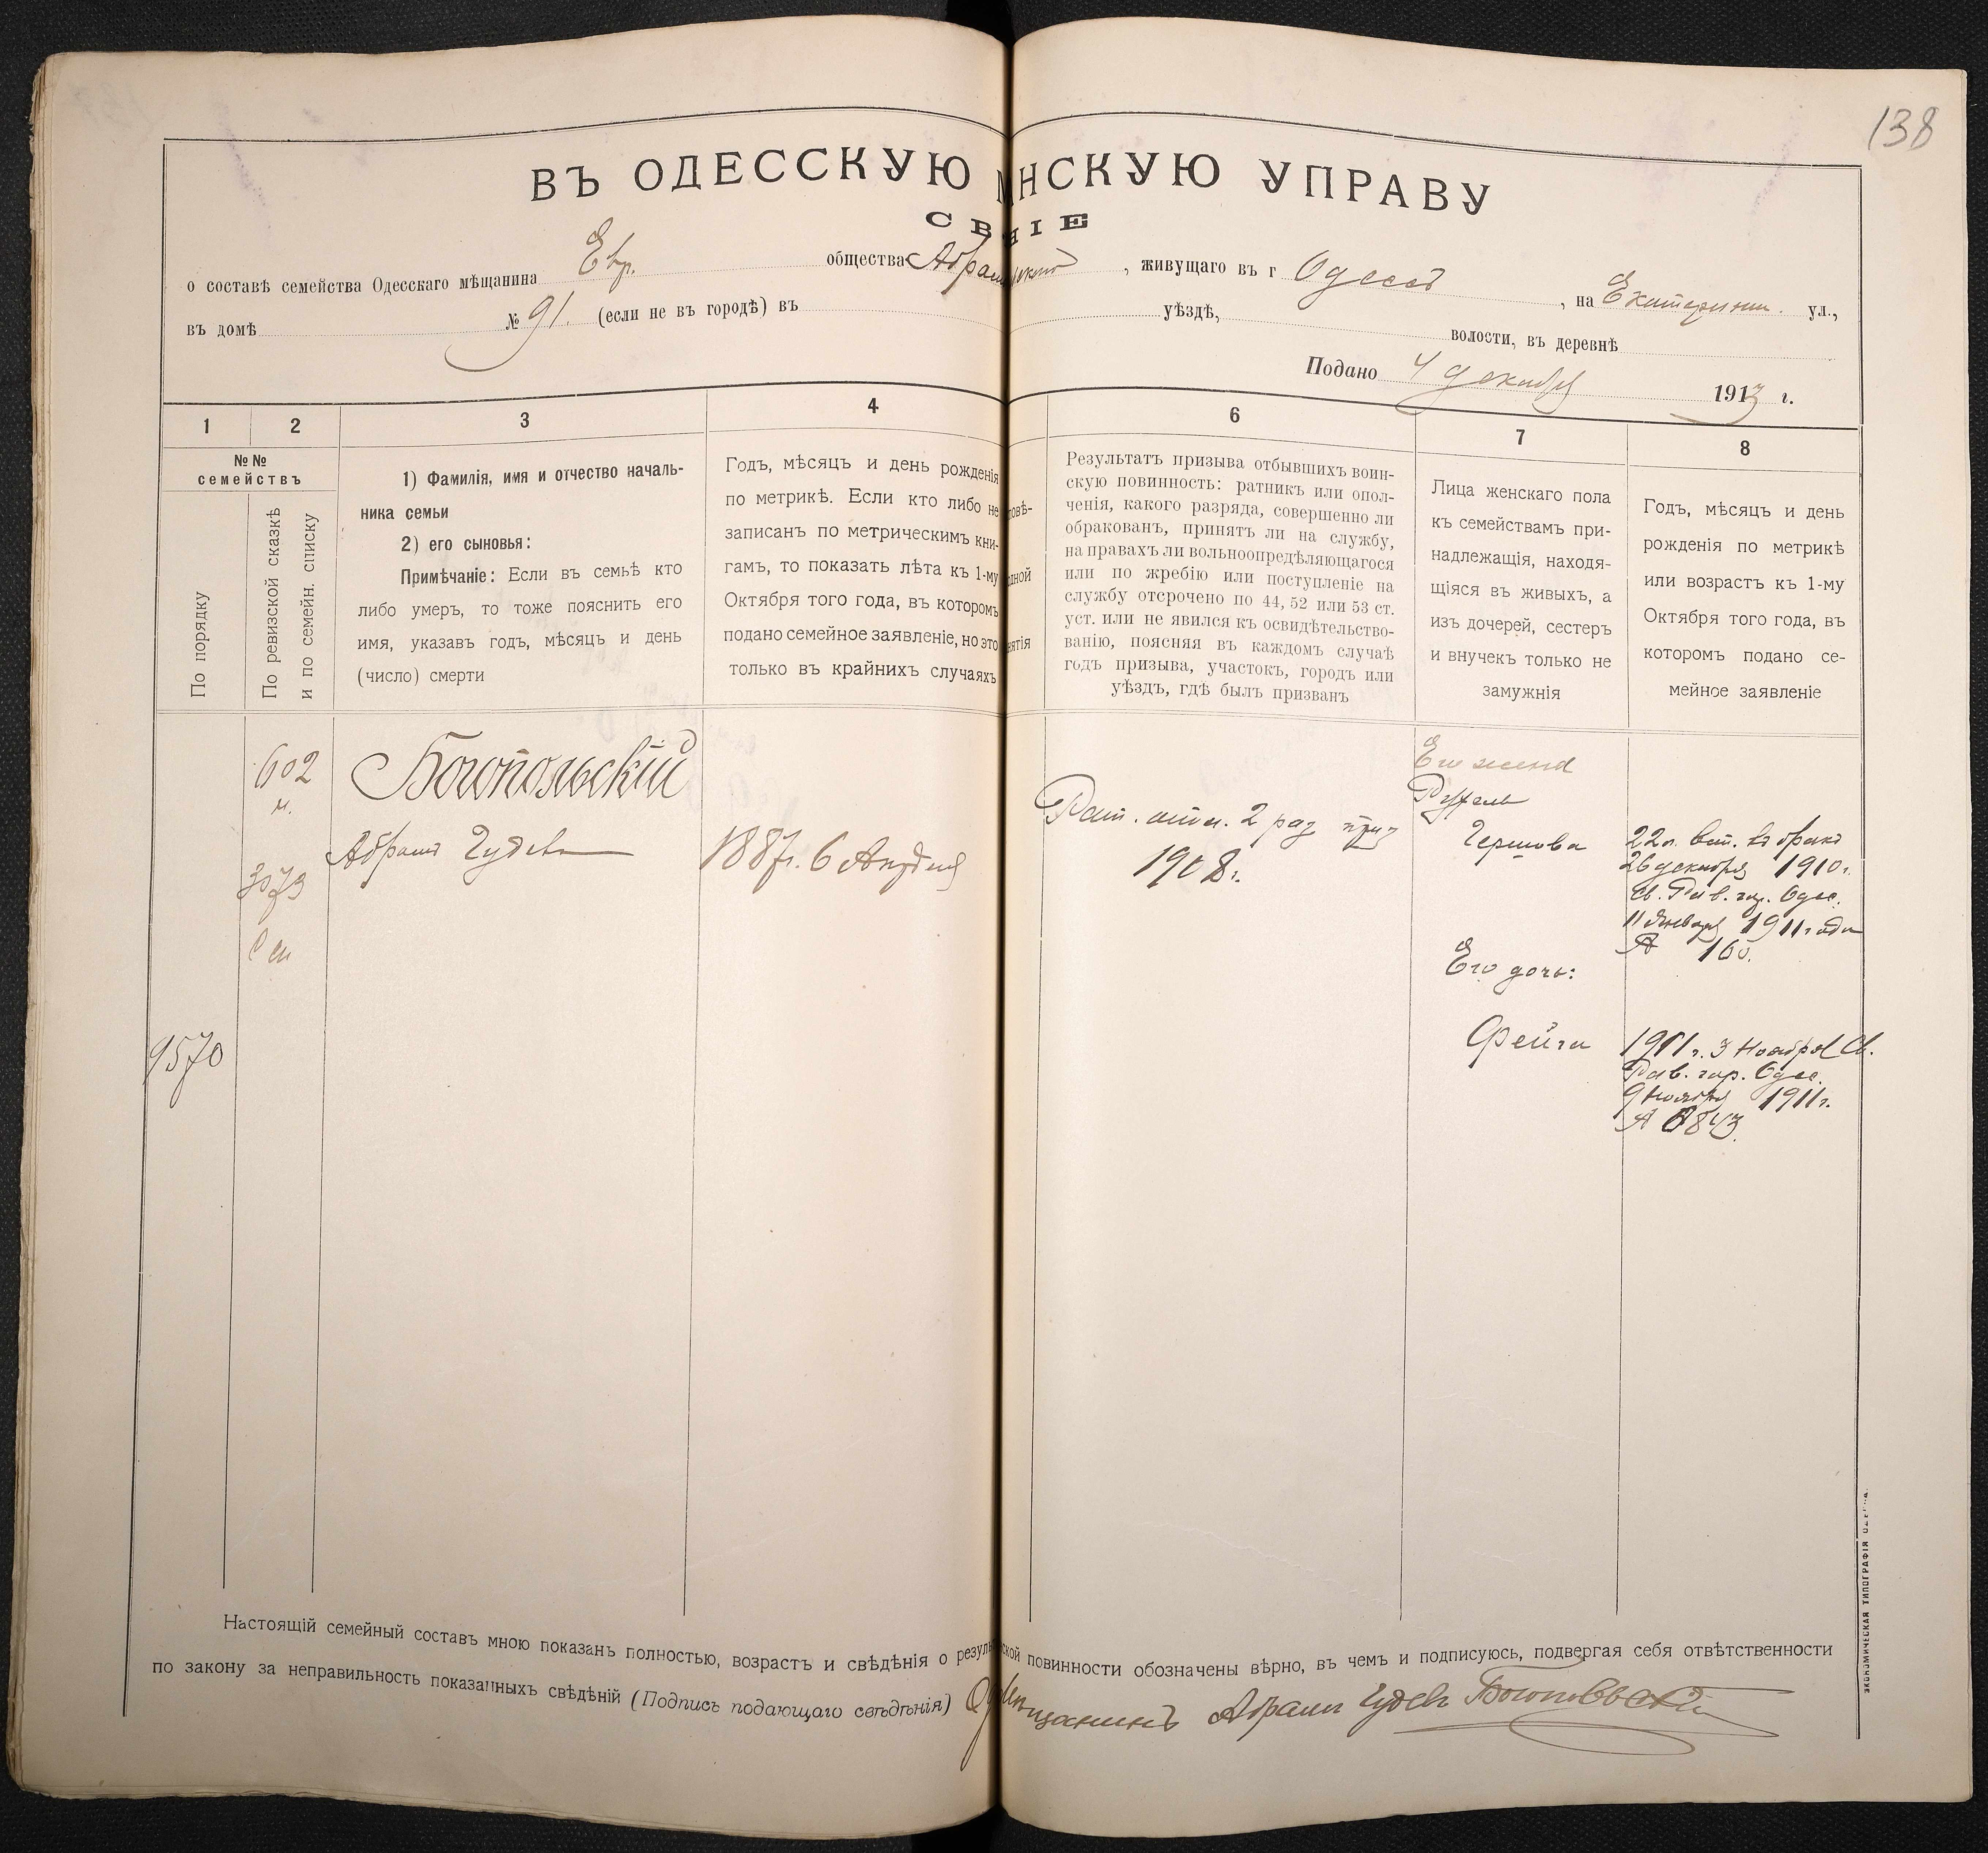 138
ВЪ ОДЕССКУЮ МНСКУЮ УПРАВУ
СВНІЕ
о составѣ семейства Одесскаго мѣщанина Евр. общества Абрам , живущаго въ г Одессѣ , на Екатеринин. ул.,
въ домѣ № 91. (если не въ городѣ) въ уѣздѣ, волости, въ деревнѣ
Подано 4 декабря 1913 г.
1
2
3
4
6
7
8
№№
семействъ
По порядку
По ревизской сказкѣ
и по семейн. списку
1) Фамилія, имя и отчество началь-
ника семьи
2) его сыновья:
Примѣчаніе: Если въ семьѣ кто
либо умеръ, то тоже пояснить его
имя, указавъ годъ, мѣсяцъ и день
(число) смерти
Годъ, мѣсяцъ и день рожденія
по метрикѣ. Если кто либо не
записанъ по метрическимъ кни-
гамъ, то показать лѣта къ 1-му
Октября того года, въ которомъ
подано семейное заявленіе, но это
только въ крайнихъ случаяхъ
повѣ-
дной
нятія
Результатъ призыва отбывшихъ воин-
скую повинность: ратникъ или опол-
ченія, какого разряда, совершенно ли
обракованъ, принятъ ли на службу,
на правахъ ли вольноопредѣляющагося
или по жребію или поступленіе на
службу отсрочено по 44, 52 или 53 ст.
уст. или не явился къ освидѣтельство-
ванію, поясняя въ каждомъ случаѣ
годъ призыва, участокъ, городъ или
уѣздъ, гдѣ былъ призванъ
Лица женскаго пола
къ семействамъ при-
надлежащія, находя-
щіяся въ живыхъ, а
изъ дочерей, сестеръ
и внучекъ только не
замужнія
Годъ, мѣсяцъ и день
рожденія по метрикѣ
или возрастъ къ 1-му
Октября того года, въ
которомъ подано се-
мейное заявленіе
602
м.
Богопольскій
Абрамъ Іудевъ
1887г. 6 Апрѣля
3073
Рат. опол. 2 раз приз
1908 г.
Его жена
Рухель
Гершова
22л. вст. въ бракъ
26 декабря 1910г.
Св. Рав. гор. Одес.
11 Января 1911 года
№ 160.
Его дочь:
Фейга
1911 г. 3 Ноября Св.
Рав. гор. Одес.
9 ноября 1911г.
№ 843.
9570
Настоящій семейный составъ мною показанъ полностью, возрастъ и свѣдѣнія о резуль ской повинности обозначены вѣрно, въ чемъ и подписуюсь, подвергая себя отвѣтственности
по закону за неправильность показанныхъ свѣдѣній (Подпись подающаго свѣдѣнія) щанинъ Абрамъ Іудевъ Богопольскій
ЭКОНОМИЧЕСКАЯ ТИПОГРАФІЯ